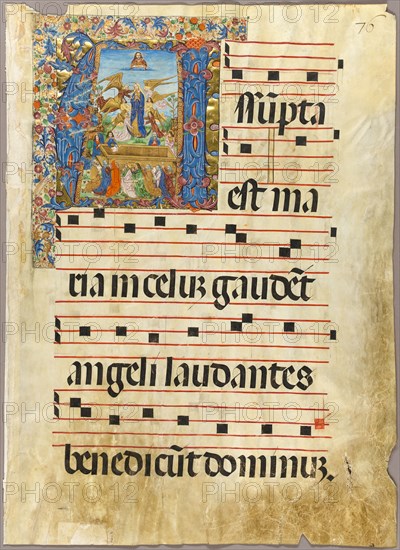 70
Assũpta
est ma
ria in celuʒ gaudẽt
angeli laudantes
benedicũt dominuʒ.